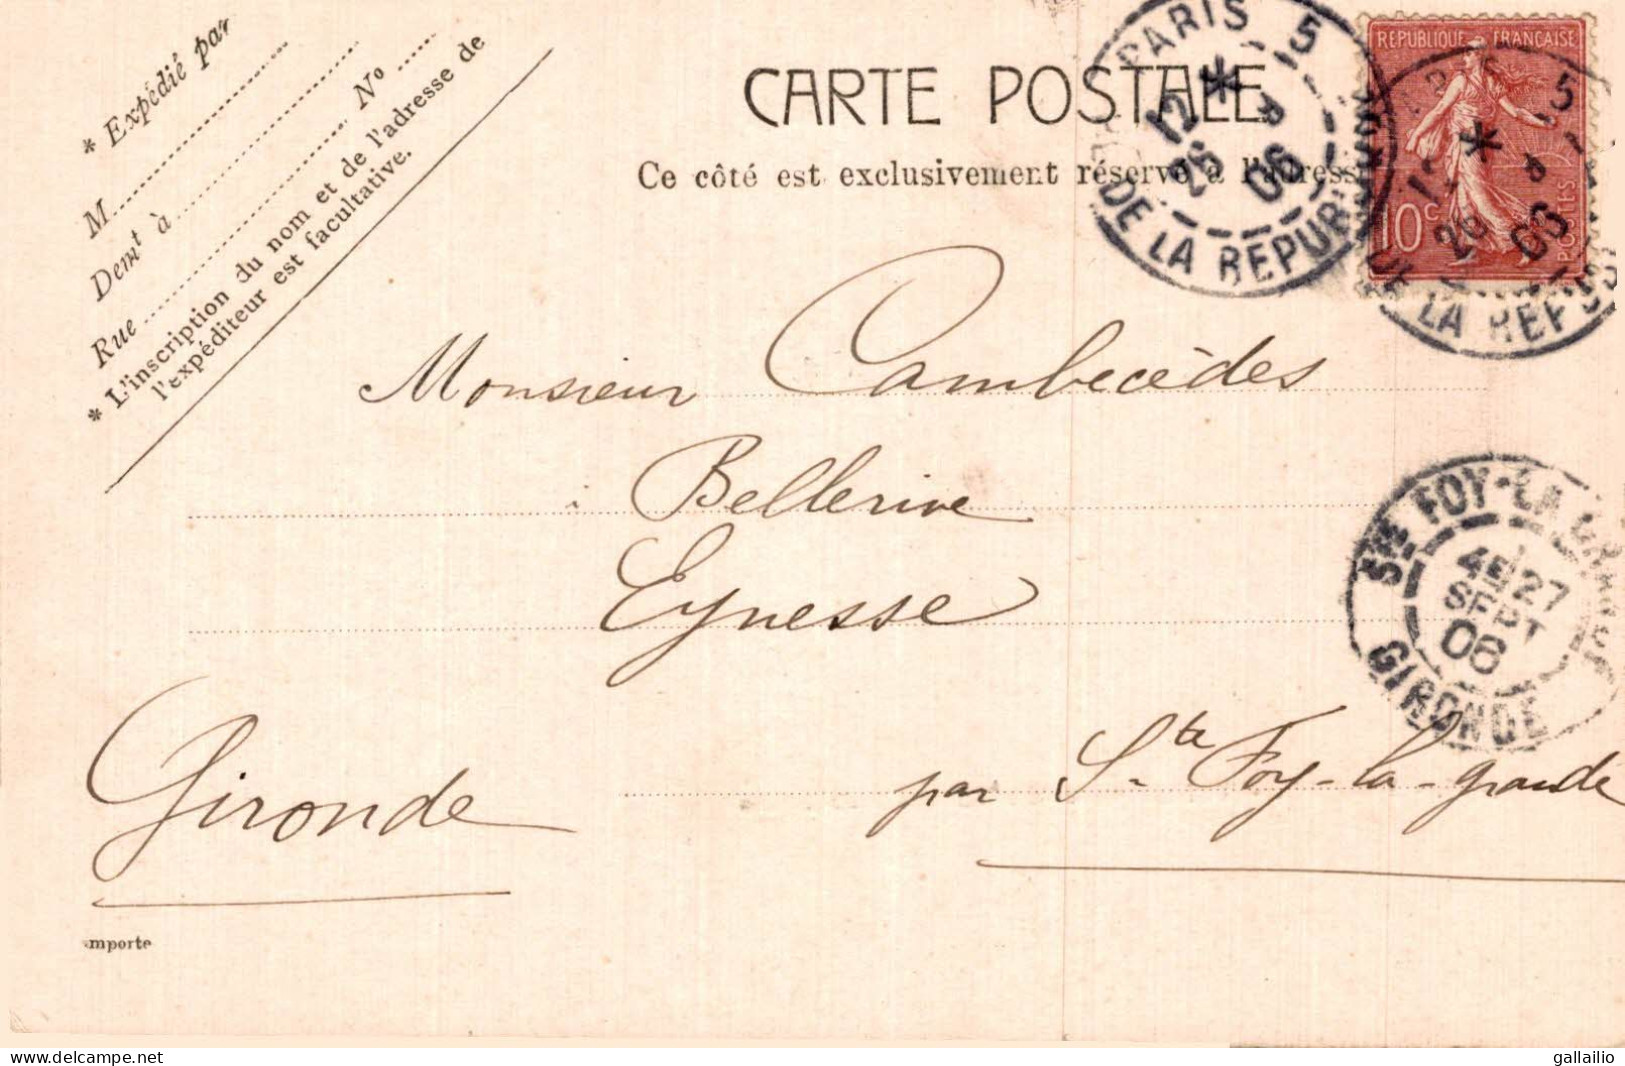 * Expédié par
M
Demt à
Rue N°
* L'inscription du nom et de l'adresse de
l'expéditeur est facultative.
CARTE POSTALE
Ce côté est exclusivement réservé à l'adresse
PARIS 5
12 *
26 9 06
DE LA REPUBLIQUE
REPUBLIQUE FRANÇAISE
10c
POSTES
5
*
26 06
DE LA REPUB
Monsieur Cambecèdes
Bellerive
Eynesse
par Ste Foy-la-grande
Gironde
STE FOY-LA-GRANDE
4E 27
SEPT
06
GIRONDE
importe
www.delcampe.net
gallailio